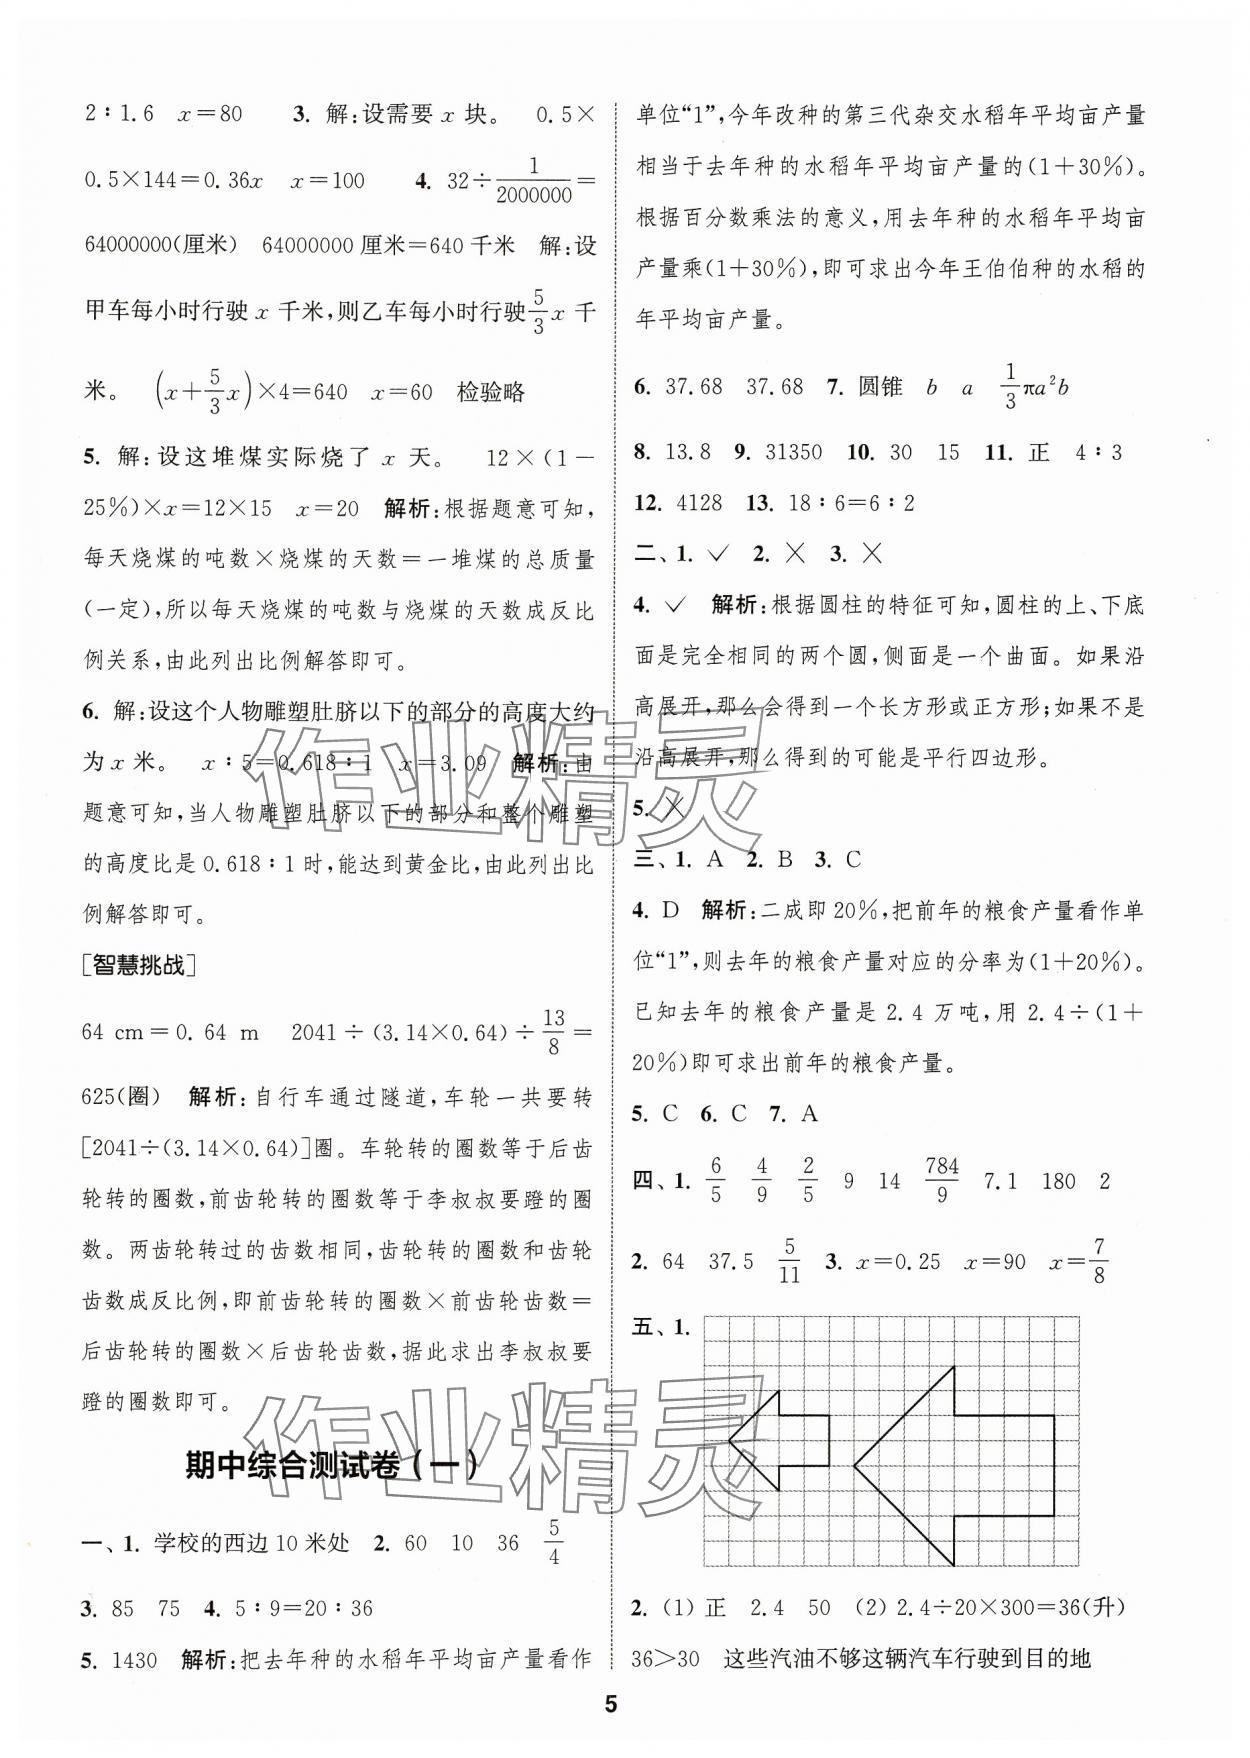 2∶1.6　x=80　3. 解:设需要 x 块。　0.5×
0.5×144=0.36x　x=100　4. 32÷1/2000000=
64000000(厘米)　64000000 厘米=640 千米　解:设
甲车每小时行驶 x 千米,则乙车每小时行驶5/3x 千
米。　(x+5/3x)×4=640　x=60　检验略
5. 解:设这堆煤实际烧了 x 天。　12×(1-
25%)×x=12×15　x=20　解析:根据题意可知,
每天烧煤的吨数×烧煤的天数=一堆煤的总质量
(一定),所以每天烧煤的吨数与烧煤的天数成反比
例关系,由此列出比例解答即可。
6. 解:设这个人物雕塑肚脐以下的部分的高度大约
为 x 米。　x∶5=0.618∶1　x=3.09　解析:由
题意可知,当人物雕塑肚脐以下的部分和整个雕塑
的高度比是 0.618∶1 时,能达到黄金比,由此列出比
例解答即可。
[智慧挑战]
64 cm=0.64 m　2041÷(3.14×0.64)÷13/8=
625(圈)　解析:自行车通过隧道,车轮一共要转
[2041÷(3.14×0.64)]圈。车轮转的圈数等于后齿
轮转的圈数,前齿轮转的圈数等于李叔叔要蹬的圈
数。两齿轮转过的齿数相同,齿轮转的圈数和齿轮
齿数成反比例,即前齿轮转的圈数×前齿轮齿数=
后齿轮转的圈数×后齿轮齿数,据此求出李叔叔要
蹬的圈数即可。
期中综合测试卷(一)
一、1. 学校的西边 10 米处　2. 60　10　36　5/4
3. 85　75　4. 5∶9=20∶36
5. 1430　解析:把去年种的水稻年平均亩产量看作
单位“1”,今年改种的第三代杂交水稻年平均亩产量
相当于去年种的水稻年平均亩产量的(1+30%)。
根据百分数乘法的意义,用去年种的水稻年平均亩
产量乘(1+30%),即可求出今年王伯伯种的水稻的
年平均亩产量。
6. 37.68　37.68　7. 圆锥　b　a　1/3πa²b
8. 13.8　9. 31350　10. 30　15　11. 正　4∶3
12. 4128　13. 18∶6=6∶2
二、1. ✓　2. ×　3. ×
4. ✓　解析:根据圆柱的特征可知,圆柱的上、下底
面是完全相同的两个圆,侧面是一个曲面。如果沿
高展开,那么会得到一个长方形或正方形;如果不是
沿高展开,那么得到的可能是平行四边形。
5. ×
三、1. A　2. B　3. C
4. D　解析:二成即 20%,把前年的粮食产量看作单
位“1”,则去年的粮食产量对应的分率为(1+20%)。
已知去年的粮食产量是 2.4 万吨,用 2.4÷(1+
20%)即可求出前年的粮食产量。
5. C　6. C　7. A
四、1. 6/5　4/9　2/5　9　14　784/9　7.1　180　2
2. 64　37.5　5/11　3. x=0.25　x=90　x=7/8
五、1.
2. (1) 正　2.4　50　(2) 2.4÷20×300=36(升)
36>30　这些汽油不够这辆汽车行驶到目的地
5
作业精灵
作业精灵